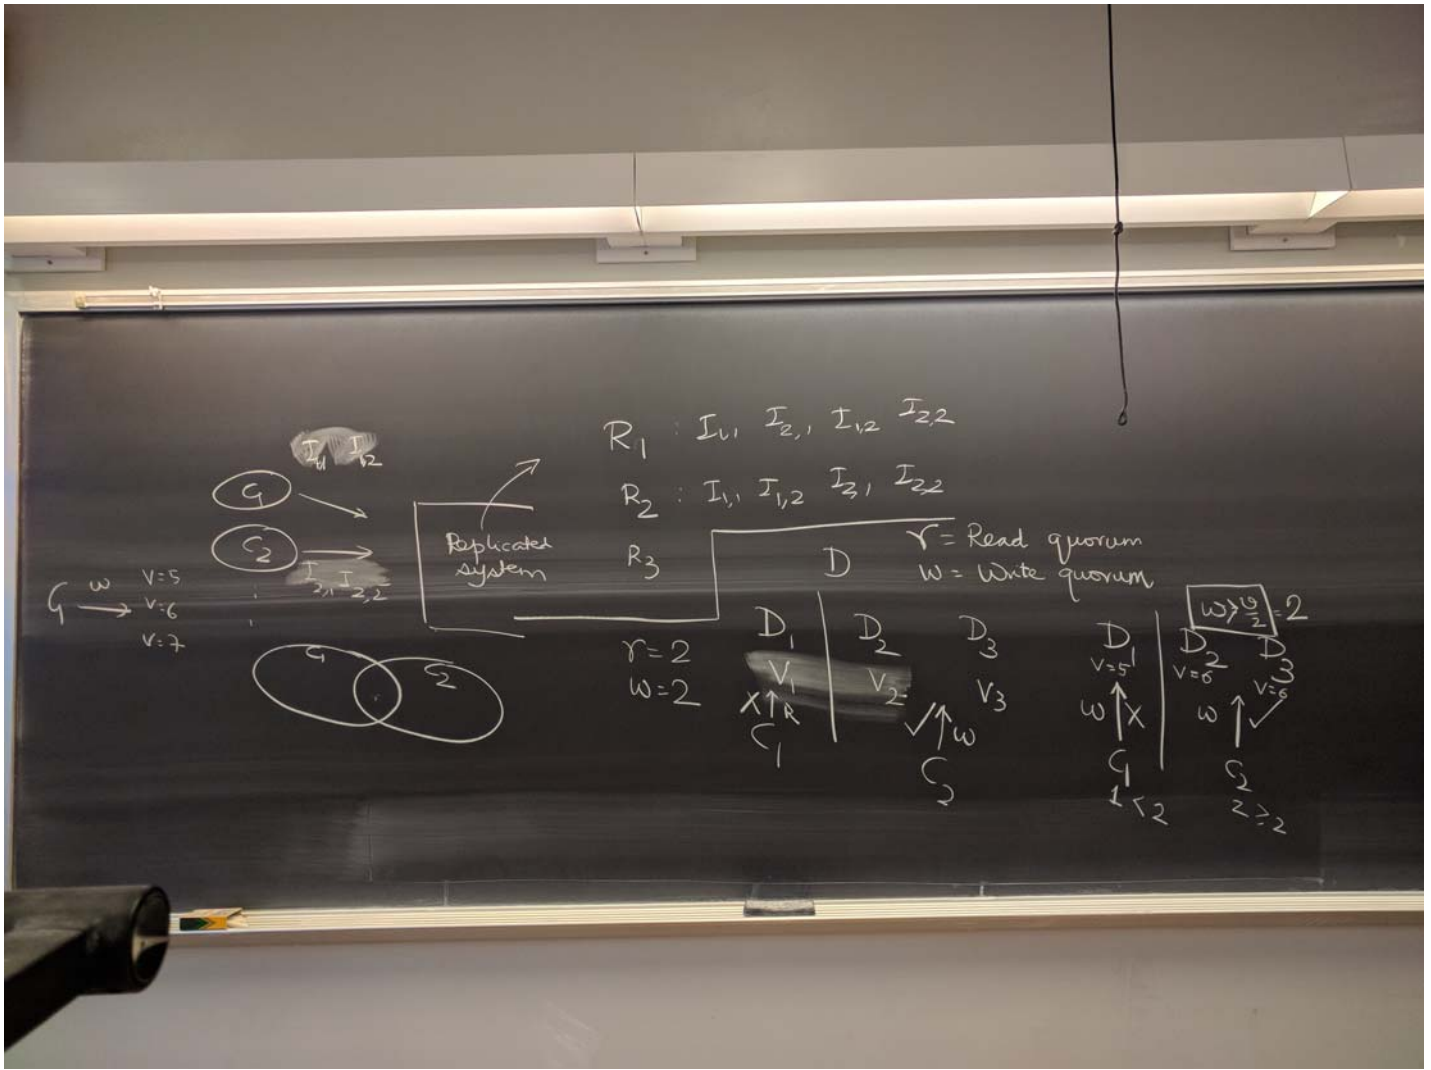 I₁,₁ I₁,₂
C₁
C₂
I₂,₁ I₂,₂
C₁ w V=5
V=6
V=7
Replicated
system
C₁ C₂
R₁ : I₁,₁ I₂,₁ I₁,₂ I₂,₂
R₂ : I₁,₁ I₁,₂ I₂,₁ I₂,₂
R₃
r = Read quorum
w = Write quorum
D
r=2
w=2
D₁ D₂ D₃
V₁ V₂ V₃
X R ✓ w
C₁ C₂
w > v/2 = 2
D₁ D₂ D₃
V=5 V=6 V=6
w X w ✓
C₁ C₂
1 < 2 2 ≥ 2